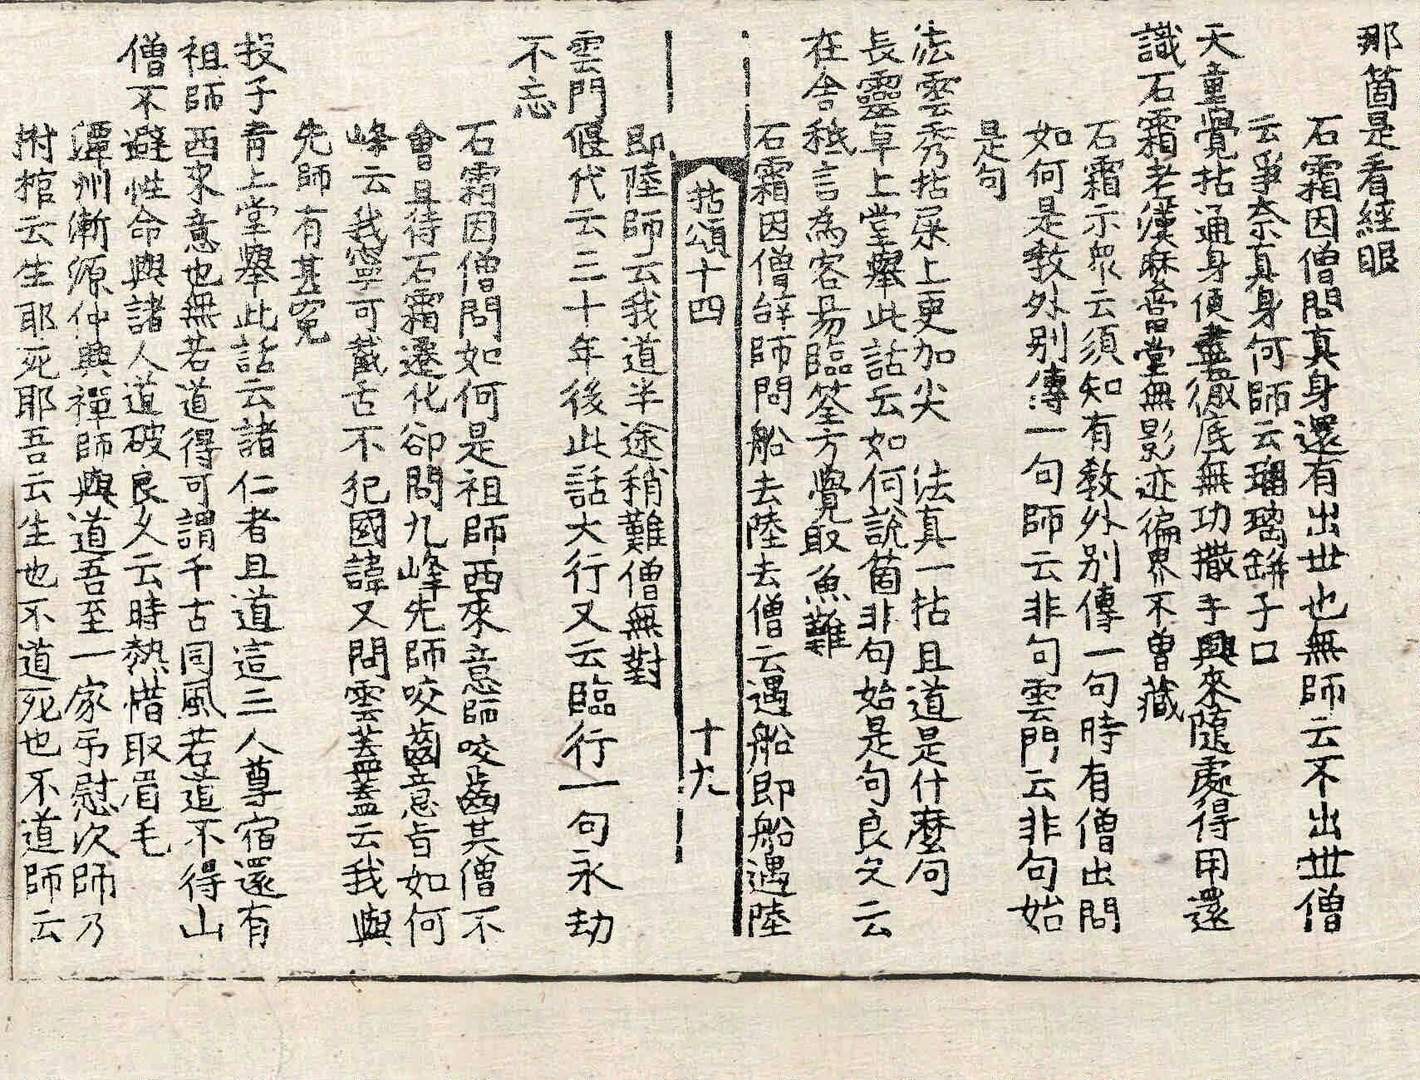 那箇是看經眼
石霜因僧問真身還有出世也無師云不出世僧
云爭奈真身何師云瑠璃缾子口
天童覺拈通身便盡徹底無功撒手興來隨處得用還
識石霜老漢麽普堂無影迹徧界不曾藏
石霜示衆云須知有敎外别傳一句時有僧出問
如何是敎外别傳一句師云非句雲門云非句始
是句
法雲秀拈屎上更加尖　法真一拈且道是什麼句
長靈卓上堂舉此話云如何說箇非句始是句良久云
在舍秪言為客易臨筌方覺取魚難
石霜因僧辝師問船去陸去僧云遇船即船遇陸
拈頌十四　十九
即陸師云我道半途稍難僧無對
雲門偃代云三十年後此話大行又云臨行一句永劫
不忘
石霜因僧問如何是祖師西來意師咬齒其僧不
會且待石霜遷化卻問九峰先師咬齒意旨如何
峰云我寧可截舌不犯國諱又問雲蓋蓋云我與
先師有甚冤
投子青上堂舉此話云諸仁者且道這三人尊宿還有
祖師西來意也無若道得可謂千古同風若道不得山
僧不避性命與諸人道破良久云時熱惜取眉毛
潭州漸源仲興禪師與道吾至一家弔慰次師乃
拊棺云生耶死耶吾云生也不道死也不道師云